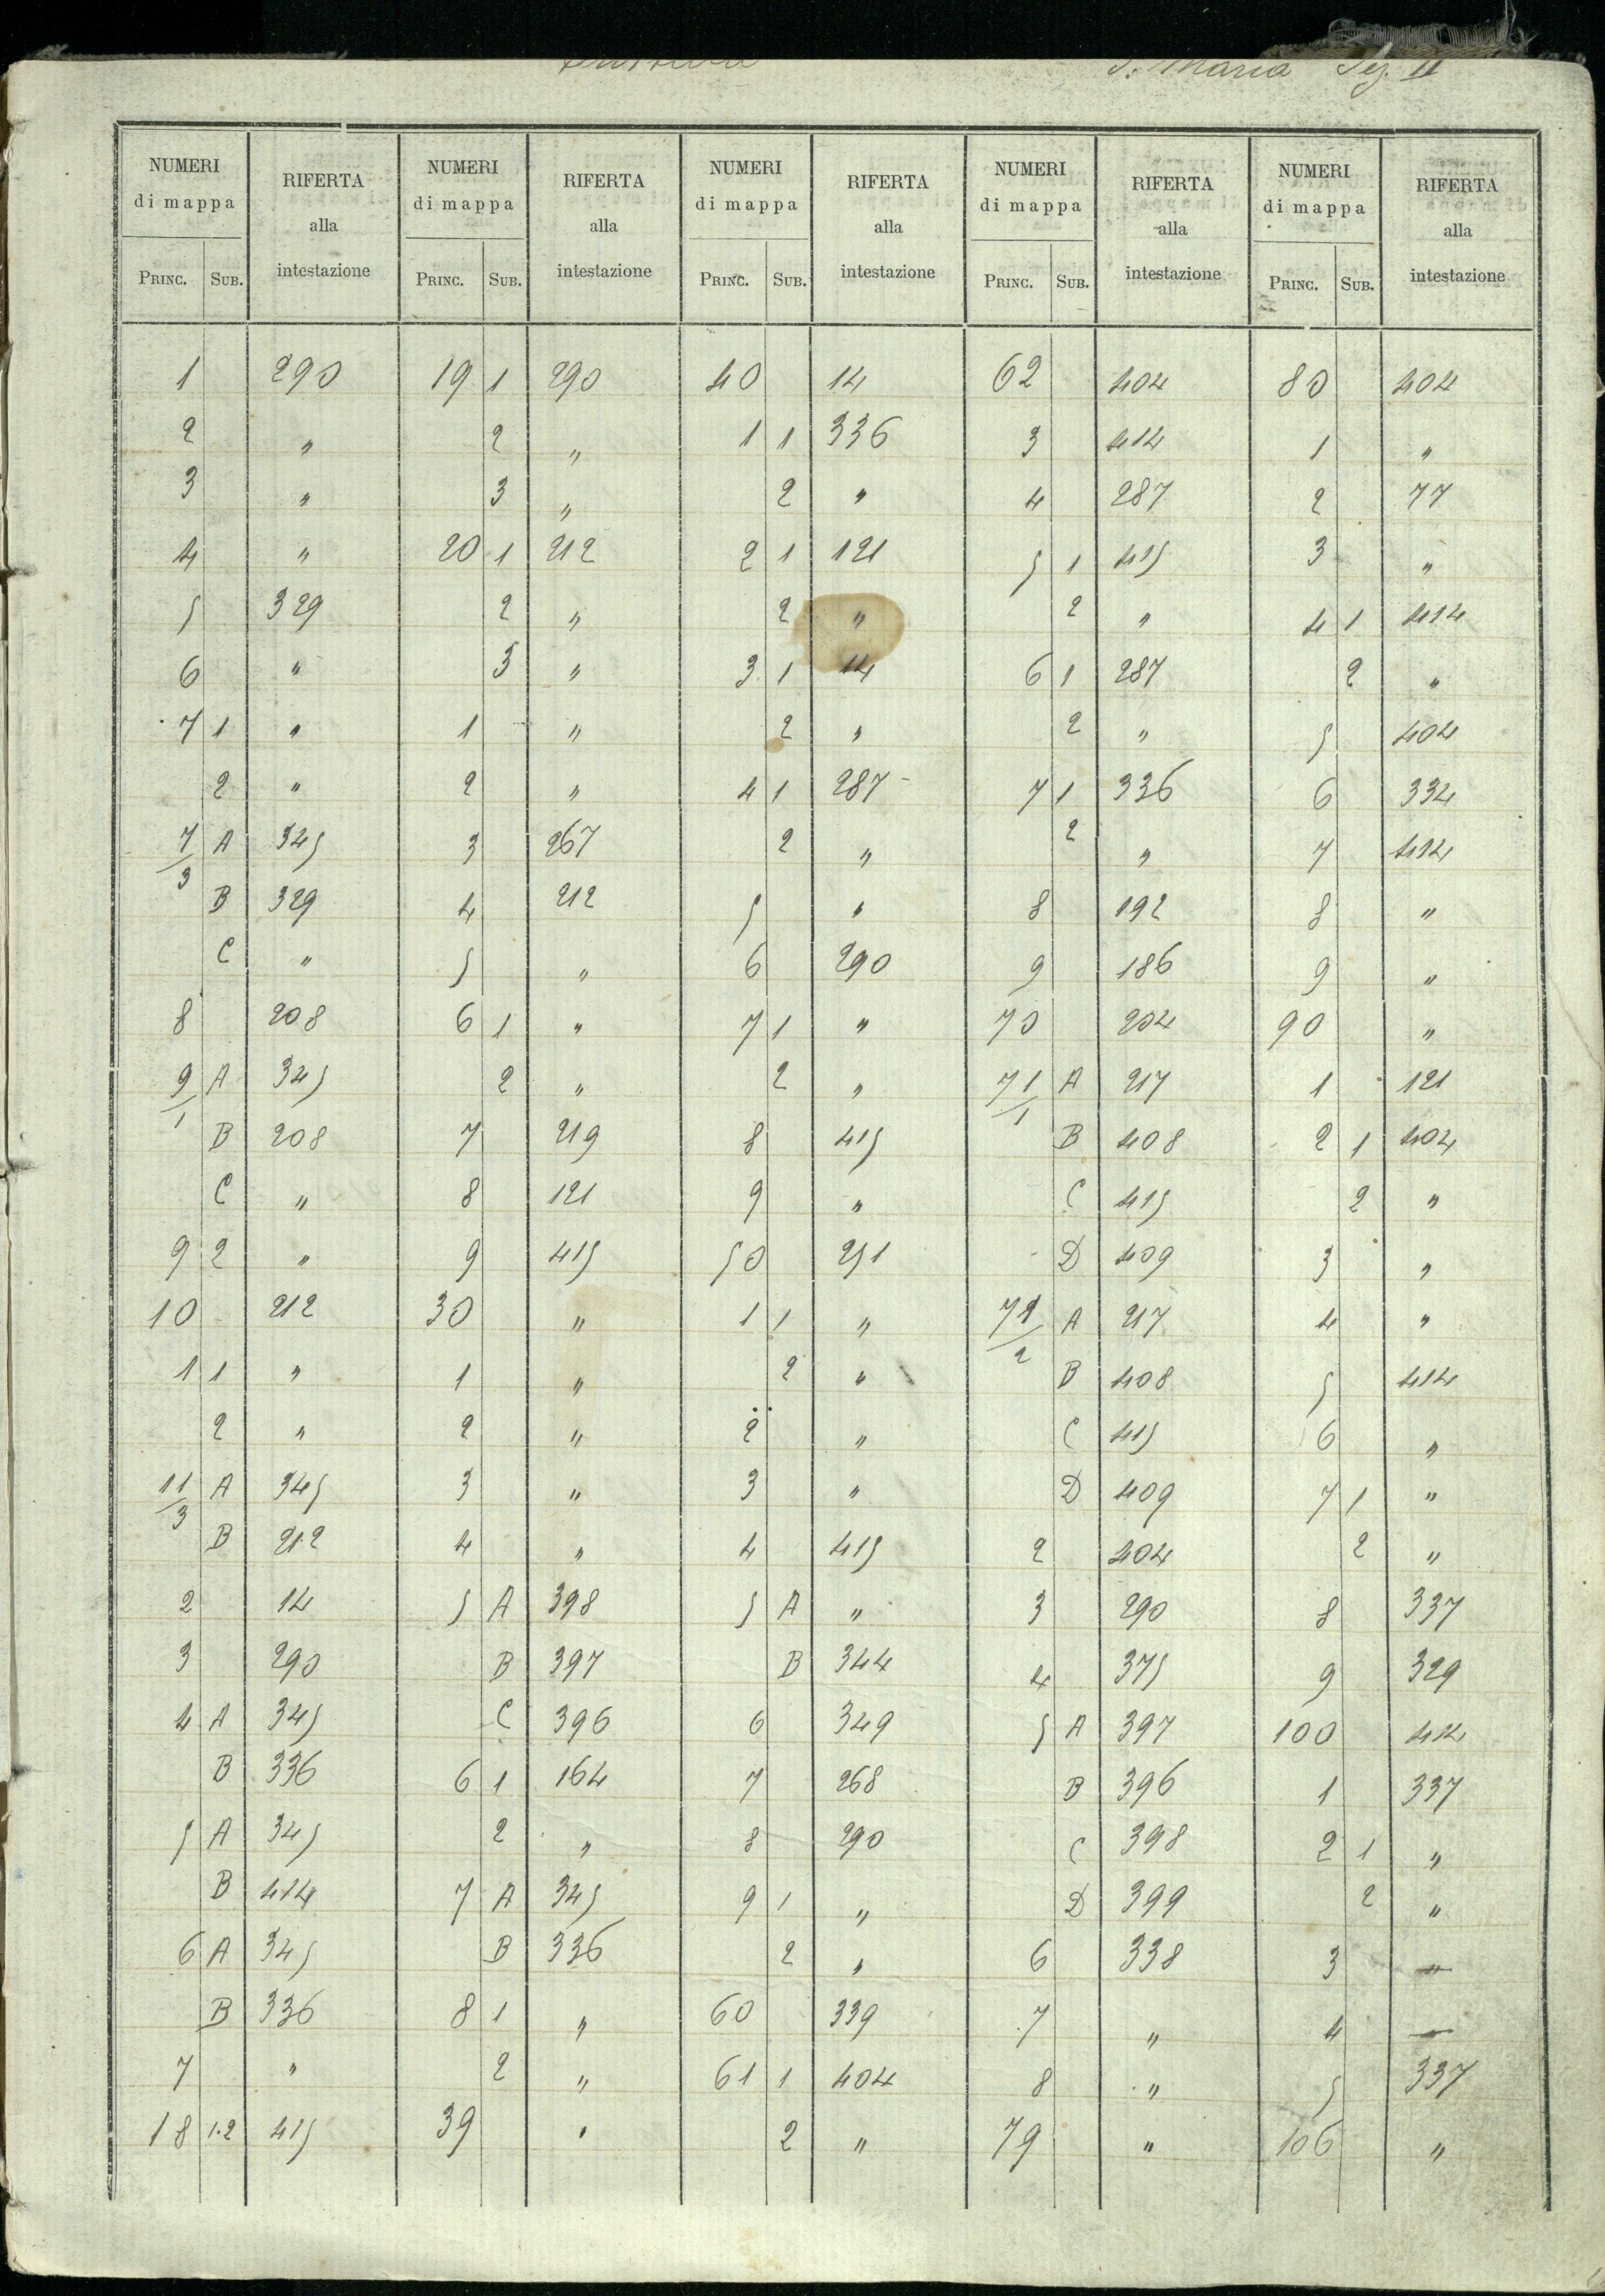 S. Maria Sez. II
NUMERI di mappa RIFERTA alla intestazione NUMERI di mappa RIFERTA alla intestazione NUMERI di mappa RIFERTA alla intestazione NUMERI di mappa RIFERTA alla intestazione NUMERI di mappa RIFERTA alla intestazione
PRINC. SUB. PRINC. SUB. PRINC. SUB. PRINC. SUB. PRINC. SUB.
1 290 19 1 290 40 14 62 404 80 404
2 „ 2 „ 1 1 336 3 414 1 „
3 „ 3 „ 2 „ 4 287 2 77
4 „ 20 1 212 2 1 121 5 1 415 3 „
5 329 2 „ 2 „ 2 „ 4 1 414
6 „ 3 „ 3 1 14 6 1 287 2 „
7 1 „ 1 „ 2 „ 2 „ 5 404
2 „ 2 „ 4 1 287 7 1 336 6 334
7/3 A 345 3 267 2 „ 2 „ 7 414
B 329 4 212 5 „ 8 192 8 „
C „ 5 „ 6 290 9 186 9 „
8 208 6 1 „ 7 1 „ 70 204 90 „
9/1 A 345 2 „ 2 „ 71/1 A 217 1 121
B 208 7 219 8 415 B 408 2 1 404
C „ 8 121 9 „ C 415 2 „
9 2 „ 9 415 50 251 D 409 3 „
10 212 30 „ 1 1 „ 71/2 A 217 4 „
1 1 „ 1 „ 2 „ B 408 5 414
2 „ 2 „ 2 „ C 415 6 „
11/3 A 345 3 „ 3 „ D 409 7 1 „
B 212 4 „ 4 415 2 404 2 „
2 14 5 A 398 5 A „ 3 290 8 337
3 290 B 397 B 344 4 375 9 329
4 A 345 C 396 6 349 5 A 397 100 414
B 336 6 1 164 7 268 B 396 1 337
5 A 345 2 „ 8 290 C 398 2 1 „
B 414 7 A 345 9 1 „ D 399 2 „
6 A 345 B 336 2 „ 6 338 3 „
B 336 8 1 „ 60 339 7 „ 4 —
7 „ 2 „ 61 1 404 8 „ 5 337
18 1.2 415 39 „ 2 „ 79 „ 106 „